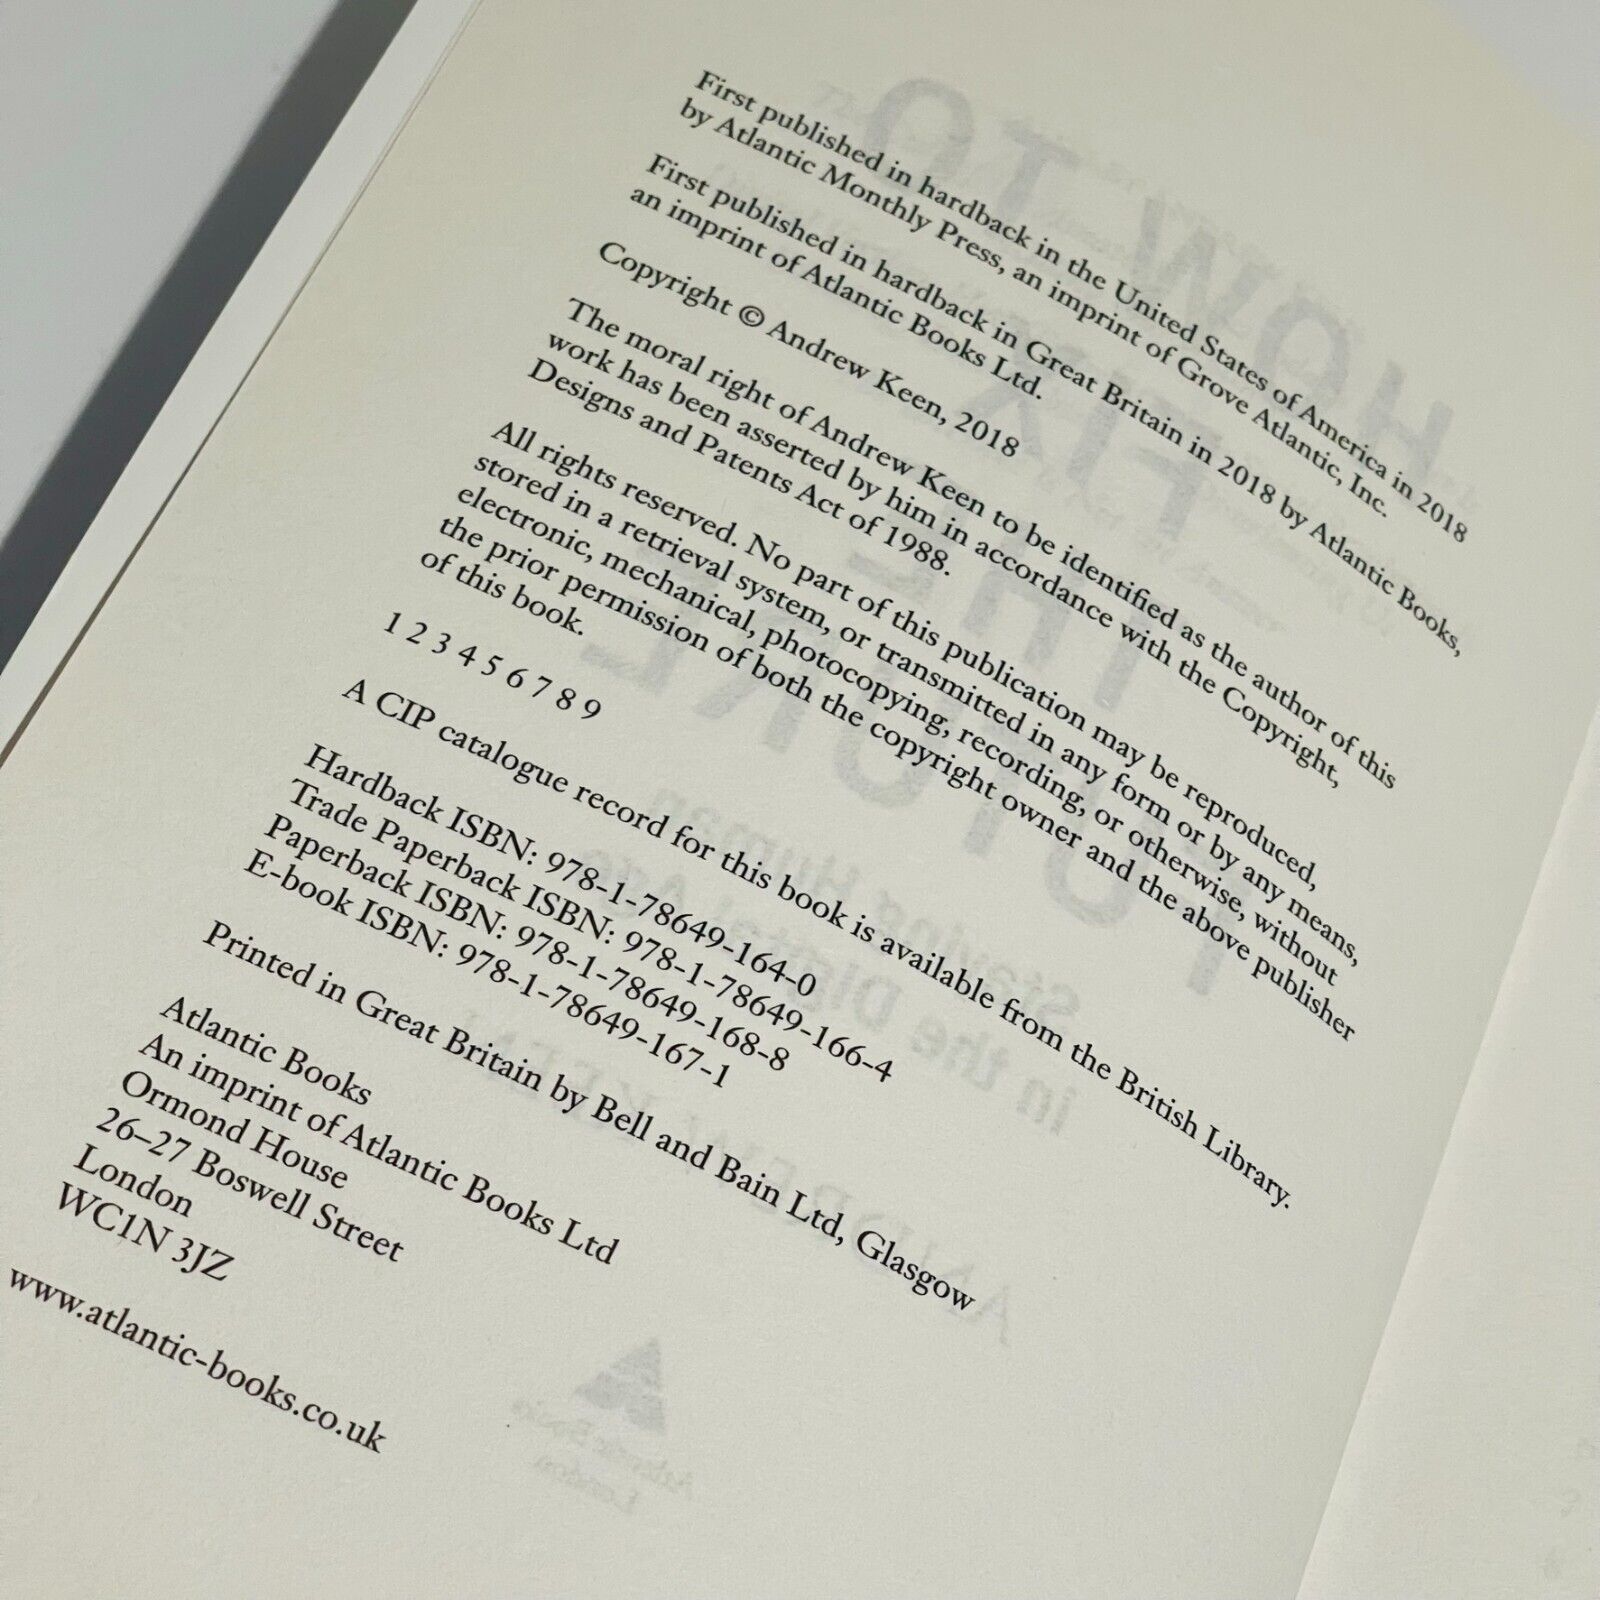 First published in hardback in the United States of America in 2018
by Atlantic Monthly Press, an imprint of Grove Atlantic, Inc.
First published in hardback in Great Britain in 2018 by Atlantic Books,
an imprint of Atlantic Books Ltd.
Copyright © Andrew Keen, 2018
The moral right of Andrew Keen to be identified as the author of this
work has been asserted by him in accordance with the Copyright,
Designs and Patents Act of 1988.
All rights reserved. No part of this publication may be reproduced,
stored in a retrieval system, or transmitted in any form or by any means,
electronic, mechanical, photocopying, recording, or otherwise, without
the prior permission of both the copyright owner and the above publisher
of this book.
1 2 3 4 5 6 7 8 9
A CIP catalogue record for this book is available from the British Library.
Hardback ISBN: 978-1-78649-164-0
Trade Paperback ISBN: 978-1-78649-166-4
Paperback ISBN: 978-1-78649-168-8
E-book ISBN: 978-1-78649-167-1
Printed in Great Britain by Bell and Bain Ltd, Glasgow
Atlantic Books
An imprint of Atlantic Books Ltd
Ormond House
26–27 Boswell Street
London
WC1N 3JZ
www.atlantic-books.co.uk
HOW TO
FIX
THE
FUTURE
Staying Human
in the Digital Age
ANDREW KEEN
Atlantic Books
London